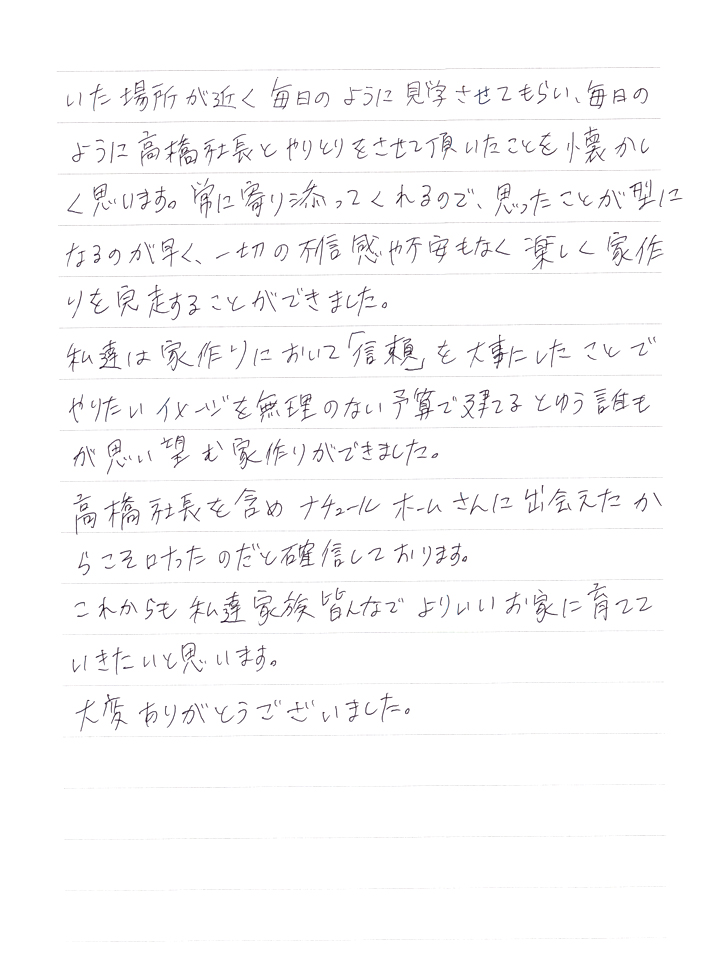 いた場所が近く毎日のように見学させてもらい、毎日の
ように高橋社長とやりとりをさせて頂いたことを懐かし
く思います。常に寄り添ってくれるので、思ったことが型に
なるのが早く、一切の不信感や不安もなく楽しく家作
りを完走することができました。
私達は家作りにおいて「信頼」を大事にしたことで
やりたいイメージを無理のない予算で建てるとゆう誰も
が思い望む家作りができました。
高橋社長を含めナチュールホームさんに出会えたか
らこそ叶ったのだと確信しております。
これからも私達家族皆んなでよりいいお家に育てて
いきたいと思います。
大変ありがとうございました。